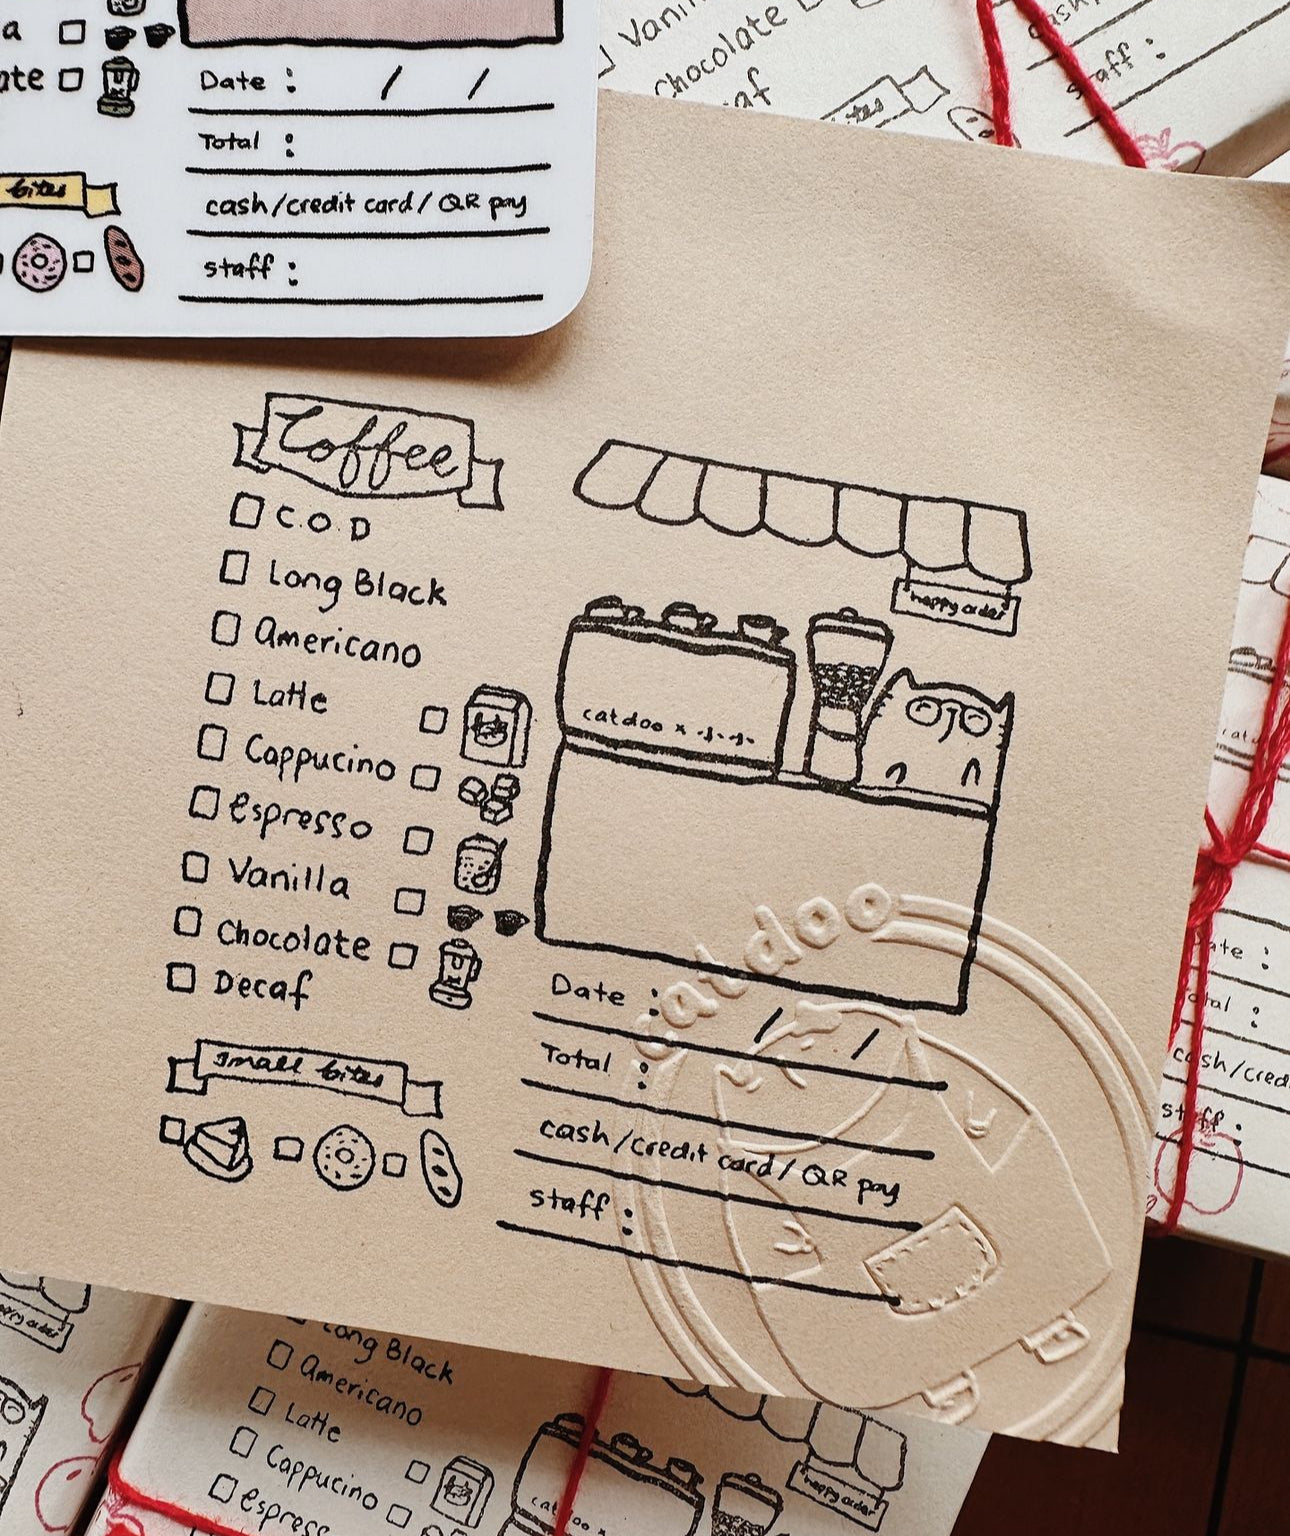 ate
Date : / /
Total :
cash/credit card/QR pay
staff :
bites
Vanil
Chocolate
af
bites
cash/
staff :
Coffee
C.O.D
Long Black
Americano
Latte
Cappucino
Espresso
Vanilla
Chocolate
Decaf
small bites
happy order
catdoo x
catdoo
Date : / /
Total :
cash/credit card/QR pay
staff :
ate :
otal :
cash/cred
staff :
happy order
Long Black
Americano
Latte
Cappucino
Espresso
happy order